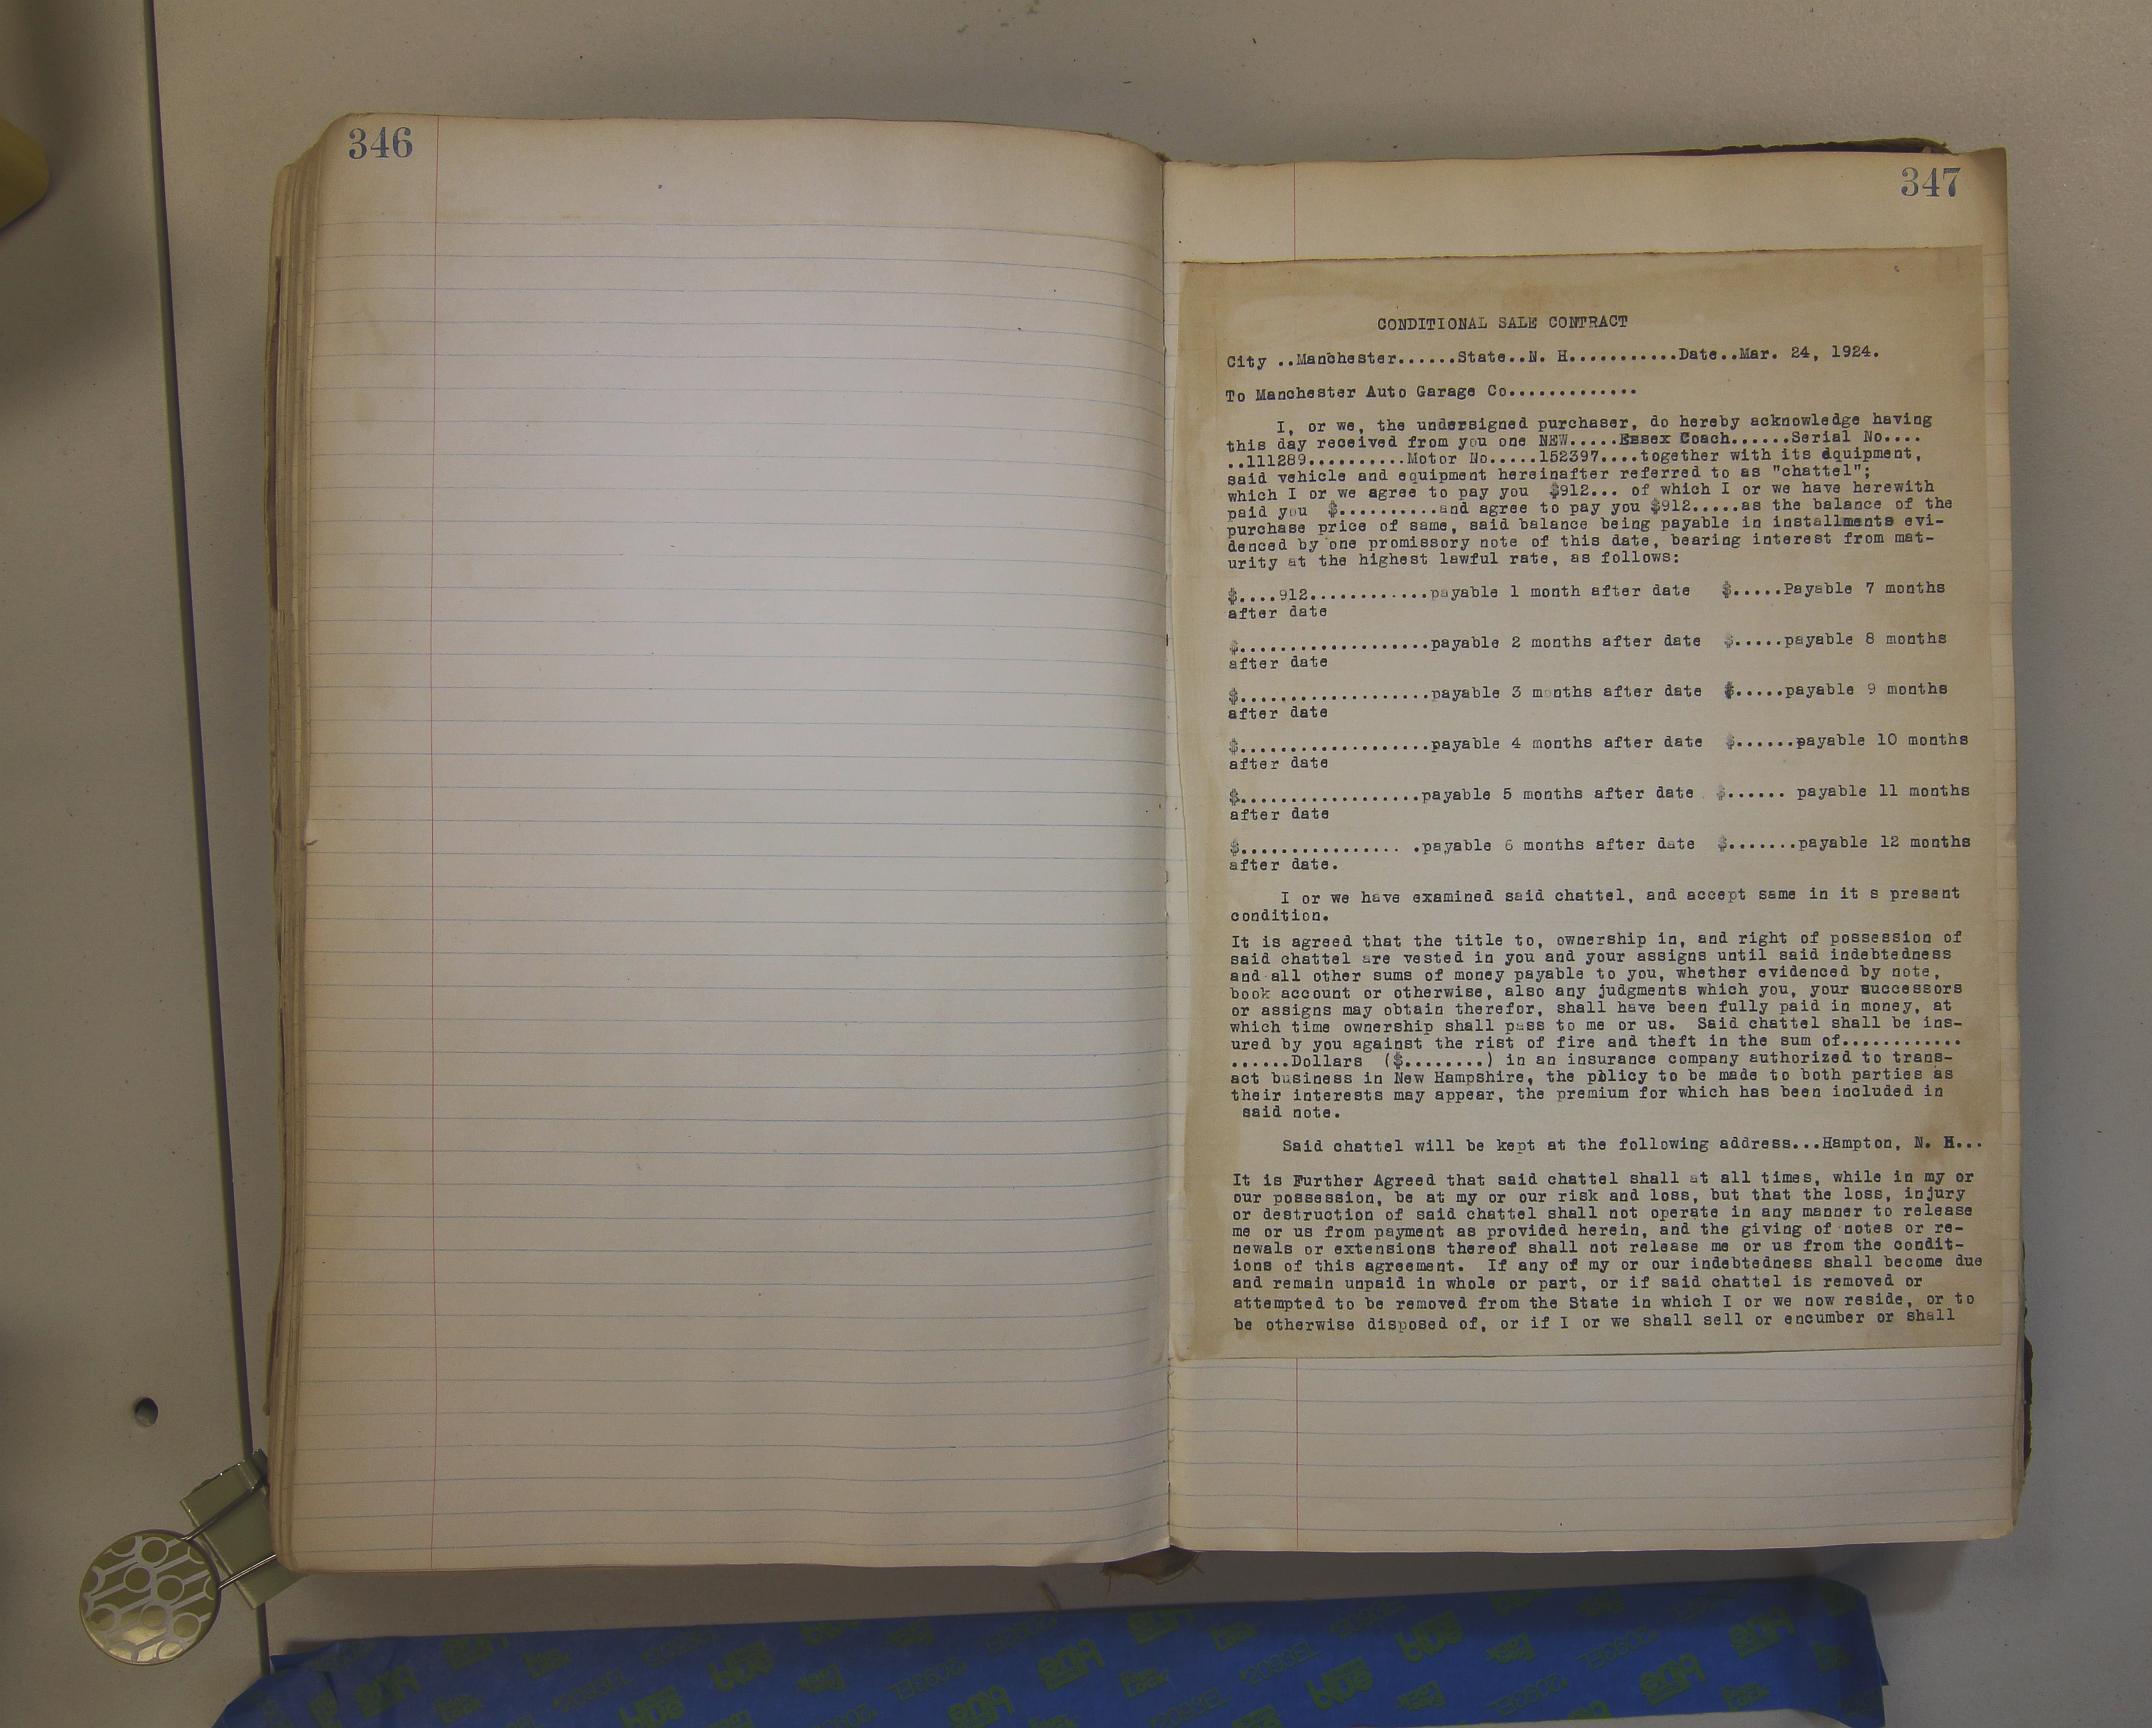 346
347
CONDITIONAL SALE CONTRACT
City ..Manchester......State..N. H...........Date..Mar. 24, 1924.
To Manchester Auto Garage Co.............
I, or we, the undersigned purchaser, do hereby acknowledge having
this day received from you one NEW.....Essex Coach......Serial No....
..111289..........Motor No.....152397....together with its equipment,
said vehicle and equipment hereinafter referred to as "chattel";
which I or we agree to pay you $912... of which I or we have herewith
paid you $..........and agree to pay you $912.....as the balance of the
purchase price of same, said balance being payable in installments evi-
denced by one promissory note of this date, bearing interest from mat-
urity at the highest lawful rate, as follows:
$....912............payable 1 month after date $.....Payable 7 months
after date
$...................payable 2 months after date $.....payable 8 months
after date
$...................payable 3 months after date $.....payable 9 months
after date
$...................payable 4 months after date $......payable 10 months
after date
$..................payable 5 months after date $...... payable 11 months
after date
$................ .payable 6 months after date $.......payable 12 months
after date.
I or we have examined said chattel, and accept same in it s present
condition.
It is agreed that the title to, ownership in, and right of possession of
said chattel are vested in you and your assigns until said indebtedness
and all other sums of money payable to you, whether evidenced by note,
book account or otherwise, also any judgments which you, your successors
or assigns may obtain therefor, shall have been fully paid in money, at
which time ownership shall pass to me or us. Said chattel shall be ins-
ured by you against the rist of fire and theft in the sum of............
......Dollars ($........) in an insurance company authorized to trans-
act business in New Hampshire, the policy to be made to both parties as
their interests may appear, the premium for which has been included in
said note.
Said chattel will be kept at the following address...Hampton, N. H...
It is Further Agreed that said chattel shall at all times, while in my or
our possession, be at my or our risk and loss, but that the loss, injury
or destruction of said chattel shall not operate in any manner to release
me or us from payment as provided herein, and the giving of notes or re-
newals or extensions thereof shall not release me or us from the condit-
ions of this agreement. If any of my or our indebtedness shall become due
and remain unpaid in whole or part, or if said chattel is removed or
attempted to be removed from the State in which I or we now reside, or to
be otherwise disposed of, or if I or we shall sell or encumber or shall